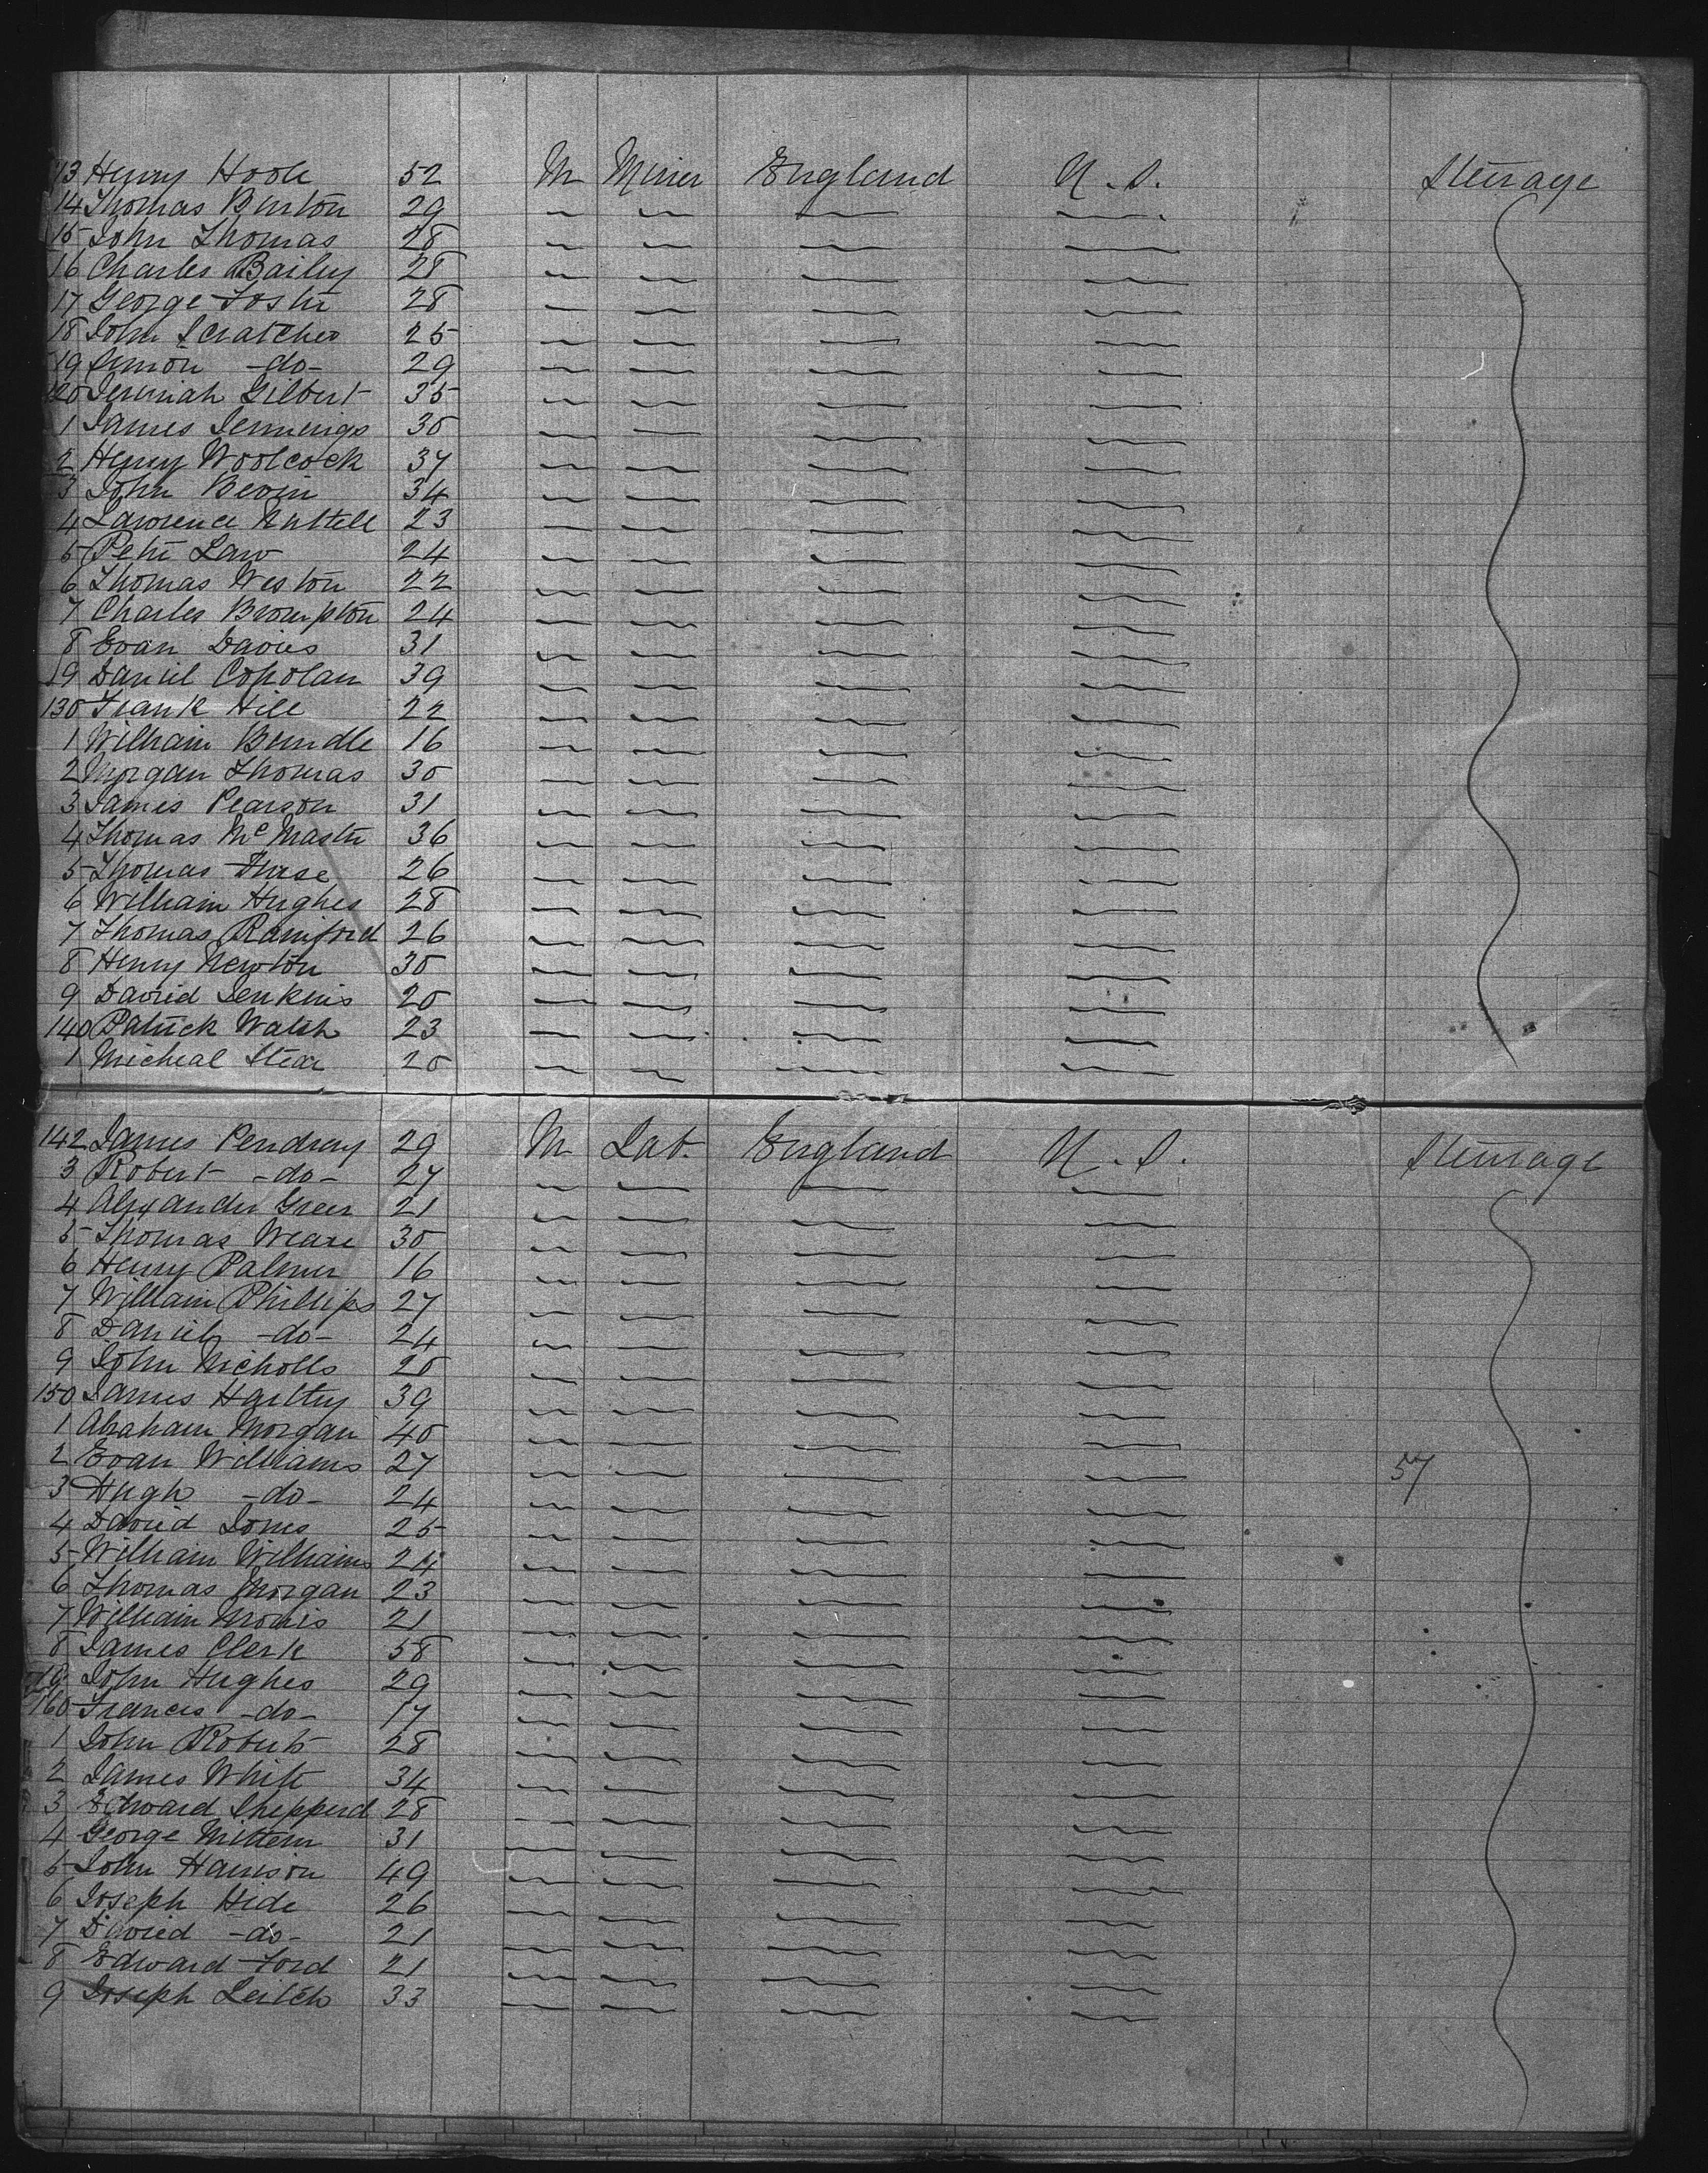 13 Henry Hoole 52 M Miner England U.S. Steerage
14 Thomas Burton 29
15 John Thomas 28
16 Charles Bailey 28
17 George Foster 28
18 John Scratcher 25
19 Simon -do- 29
120 Jeremiah Gilbert 35
1 James Jennings 30
2 Henry Woolcock 37
3 John Bevin 34
4 Lawrence Nuttell 23
5 Peter Law 24
6 Thomas Weston 22
7 Charles Brompton 24
8 Evan Davies 31
29 Daniel Copolan 39
130 Frank Hill 22
1 William Brindle 16
2 Morgan Thomas 30
3 James Pearson 31
4 Thomas McMaster 36
5 Thomas 26
6 William Hughes 28
7 Thomas Rainford 26
8 Henry Newton 30
9 David Jenkins 20
140 Patrick Walsh 23
1 Micheal 20
142 James Pendrey 29 M Lab. England U.S. Steerage
3 Robert -do- 27
4 Alexander Green 21
5 Thomas Weare 30
6 Henry Palmer 16
7 William Phillips 27
8 Daniel -do- 24
9 John Nicholls 20
150 James Hartley 39
1 Abraham Morgan 40
2 Evan Williams 27 57
3 Hugh -do- 24
4 David Jones 25
5 William Williams 24
6 Thomas Morgan 23
7 William Morris 21
8 James Clerk 58
59 John Hughes 29
160 Francis -do- 17
1 John Roberts 28
2 James White 34
3 Edward Shepperd 28
4 George Mittern 31
5 John Harrison 49
6 Joseph Hide 26
7 David -do- 21
8 Edward Ford 21
9 Joseph Leitch 33